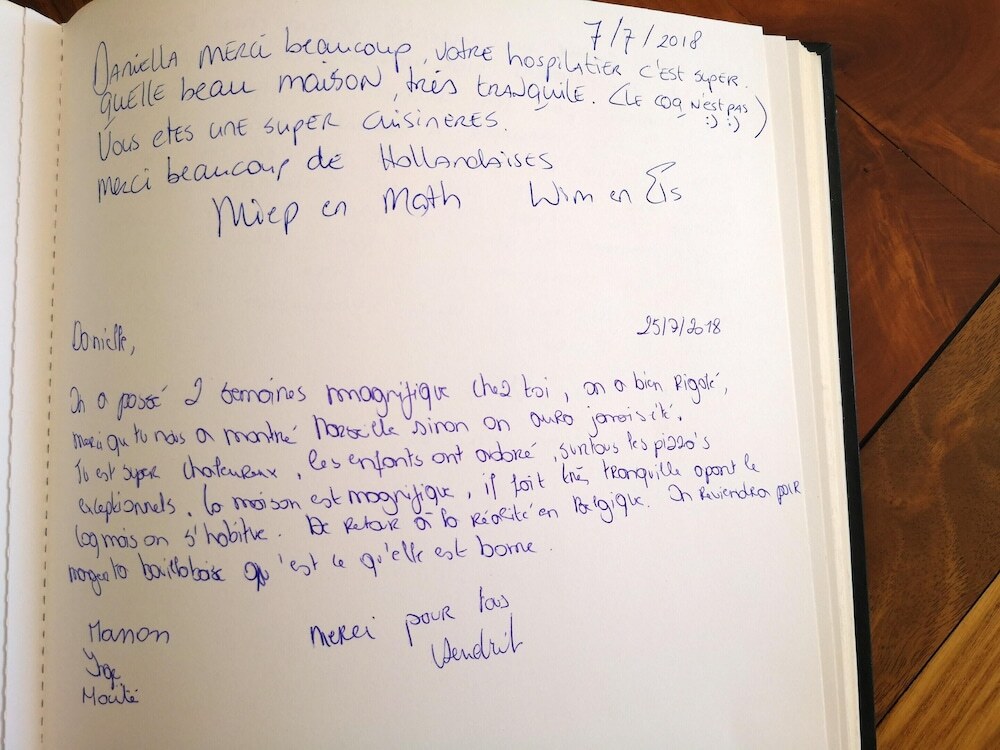 7/7/2018
DANIELLA MERCI beaucoup, VOTRE hospilatier c'est super.
QUELLE beau maison, très TRANQUILE. (LE COQ N'EST PAS :) :) )
Vous etes UNE super cuisineres.
Merci beaucoup de Hollandaises
Miep en Math Wim en Els
25/7/2018
Danielle,
On a passé 2 semaines magnifique chez toi, on a bien Rigolé,
merci qu tu nous a montré Marseille sinon on aura jamais été.
Tu est super chaleureux, les enfants ont adoré, surtous les pizza's
exceptionnels. la maison est magnifique, il fait très tranquille apart le
coq mais on s'habitue. De Retour à la Réalité en Belgique. On Reviendra pour
manger ta qu'est ce qu'elle est bonne.
Manon merci pour tous